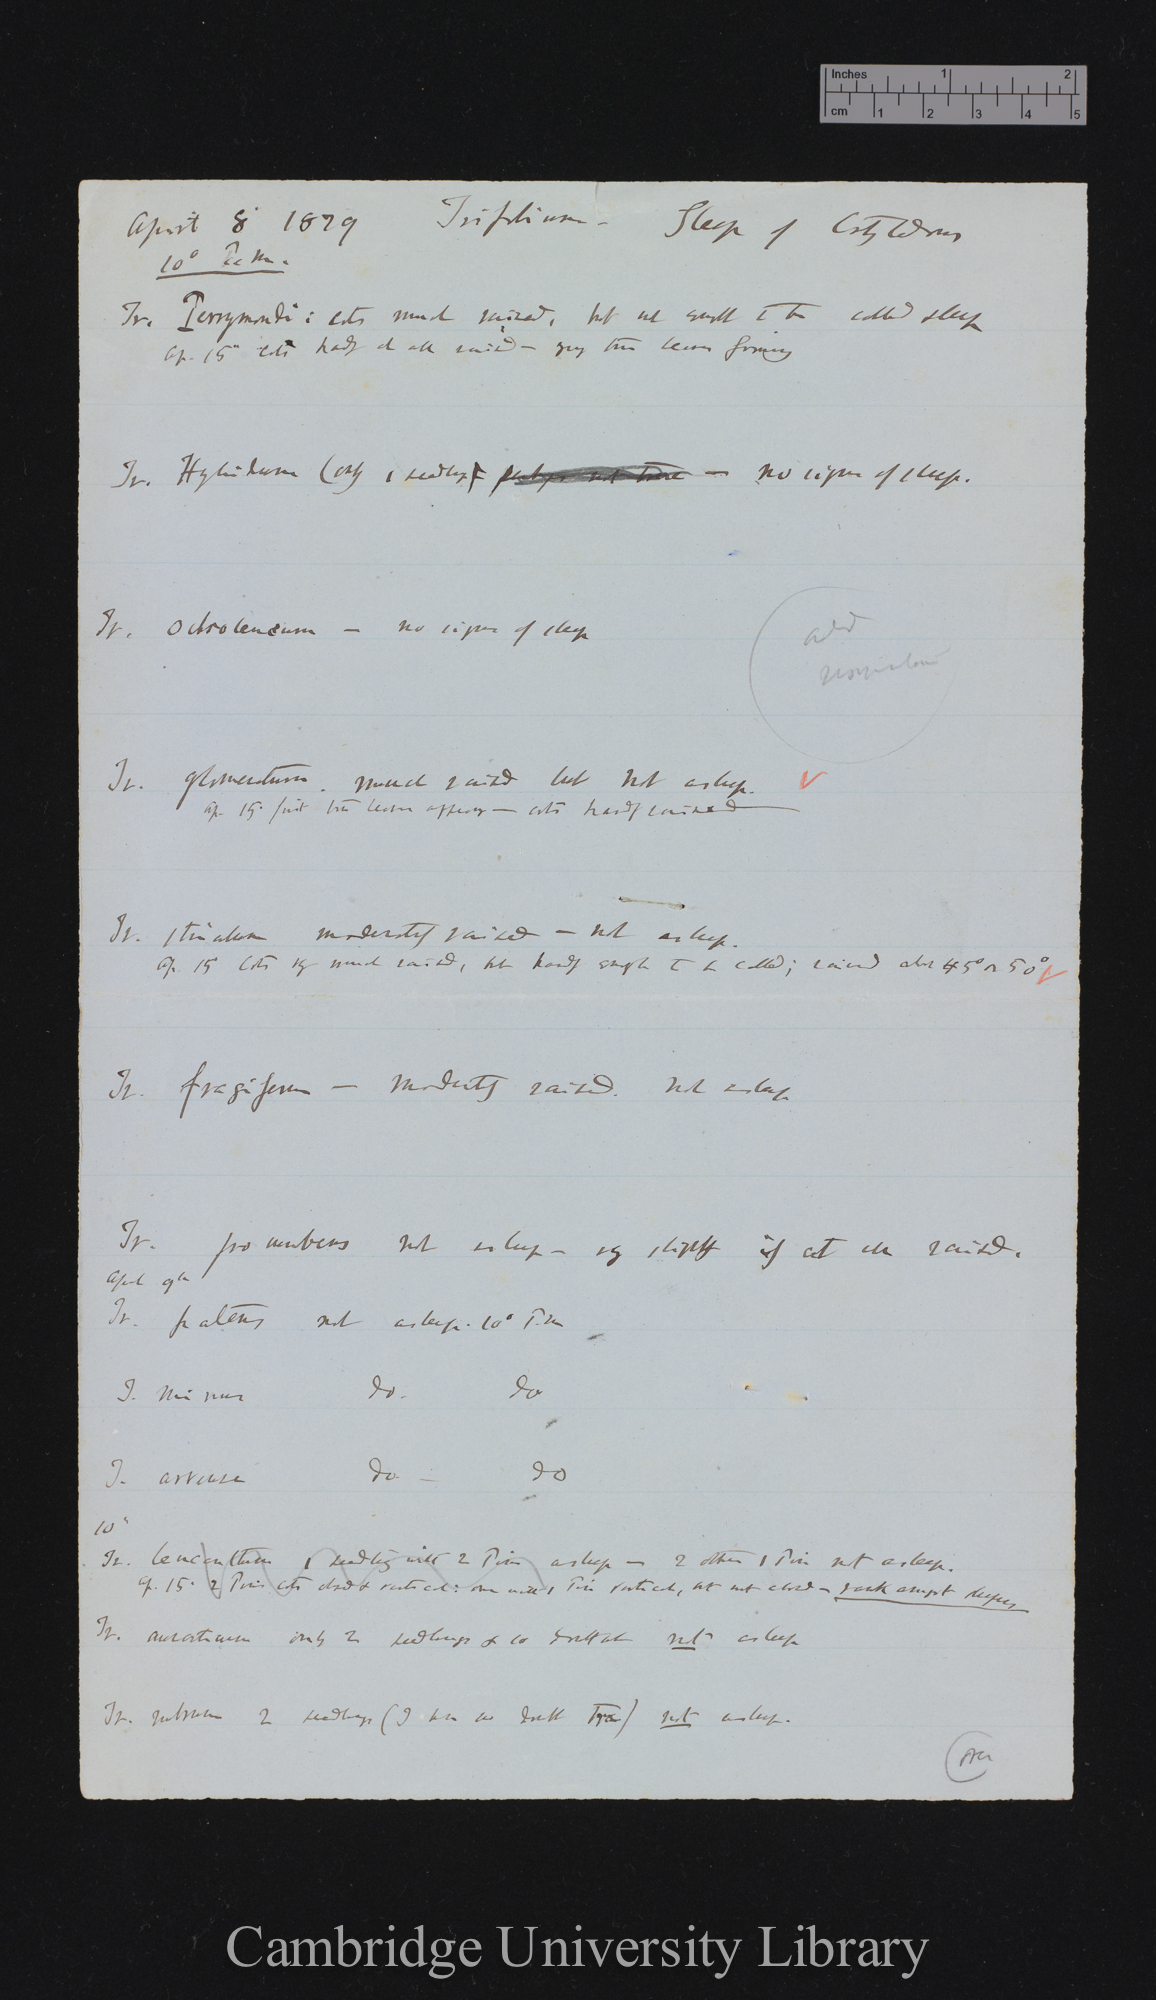 Inches 1 2
cm 1 2 3 4 5
April 8 1879 Trifolium - Sleep of Cotyledons
10° P.m.
Tr. Perrymondi: cots much raised, but not enough to be called sleep
Ap. 15 cots hardly at all raised - true leaves forming
Tr. Hybridum (only 1 seedling perhaps not true — no signs of sleep.
Tr. ochroleucum — no signs of sleep
add
Tr. glomeratum. much raised but not asleep.
Ap. 15 first true leaves appearing — cots hardly raised
Tr. striatum moderately raised — not asleep.
Ap. 15 Cots very much raised, but hardly enough to be called; raised above 45° or 50°
Tr. fragiferum — moderately raised. not asleep
Tr. procumbens not asleep — very slightly if at all raised.
April 9th
Tr. patens not asleep. 10° P.m
T. minus do. do
T. arvense do — do
10th
Tr. leucanthum 1 seedling with 2 asleep — 2 other not asleep.
Ap. 15. 2 cots closed & vertical: one with 1 vertical, but not closed — rank amongst sleepers
Tr. only 2 seedlings & so doubtful not asleep
Tr. rubrum 2 seedlings (I have no doubt True) not asleep.
over
Cambridge University Library